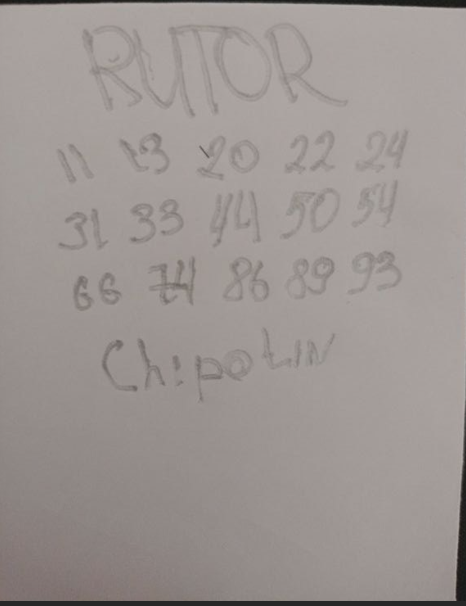 RUTOR
11 13 20 22 24
31 33 44 50 54
66 74 86 89 93
ChipoLIN